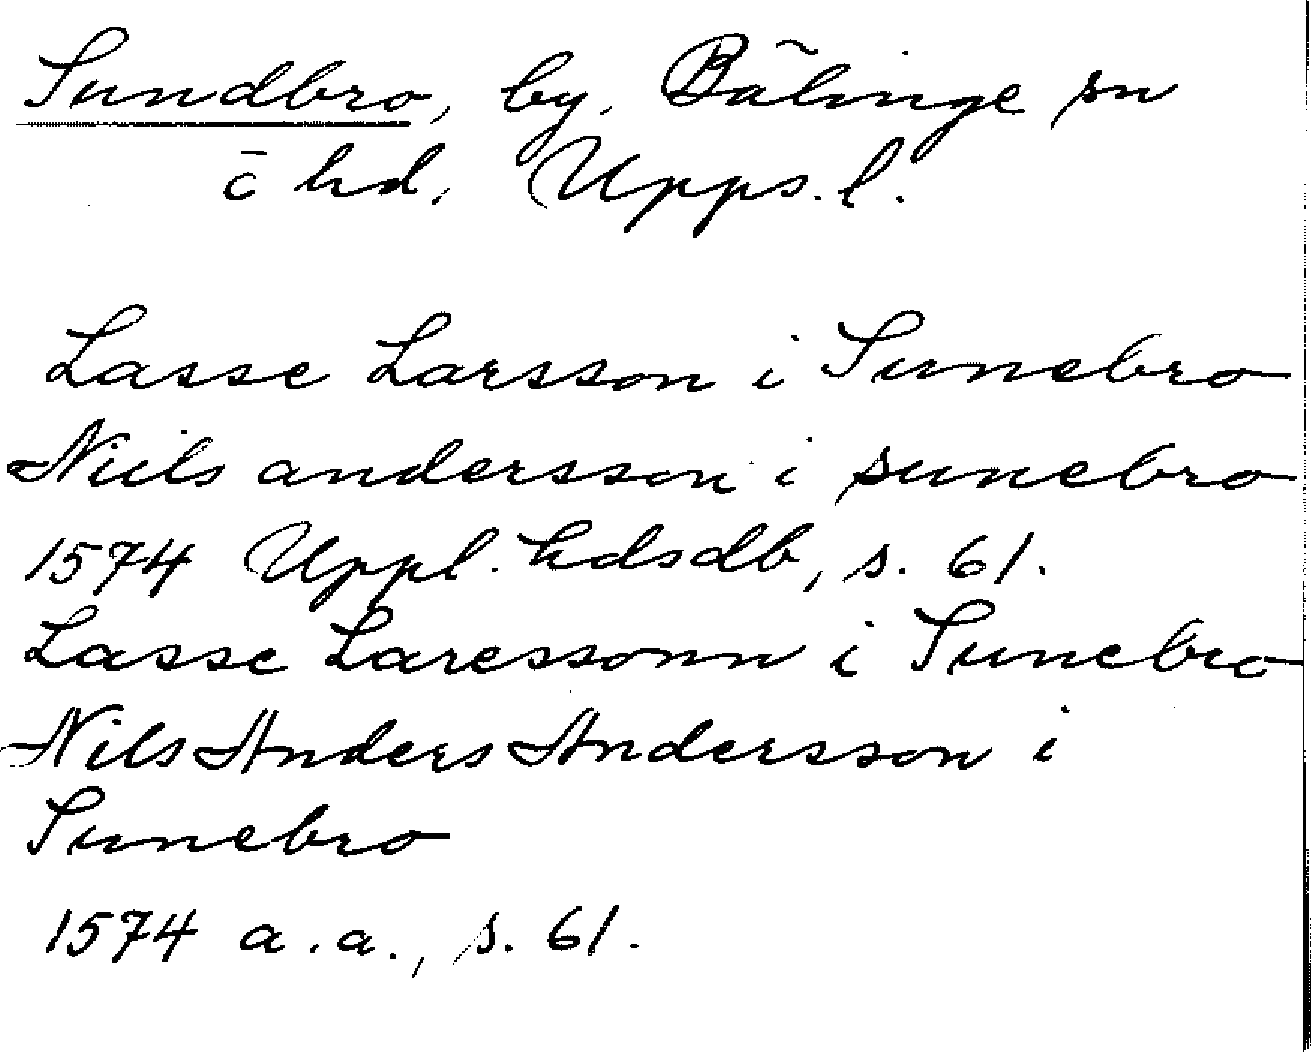 Sundbro, by, Bälinge sn
o hd, Upps. l.
Lasse Larsson i Sunebro
Niils andersson i sunebro
1574 Uppl. hdsdb, s. 61.
Lasse Laressonn i Sunebro
Nils Anders Andersson i
Sunebro
1574 a.a., s. 61.